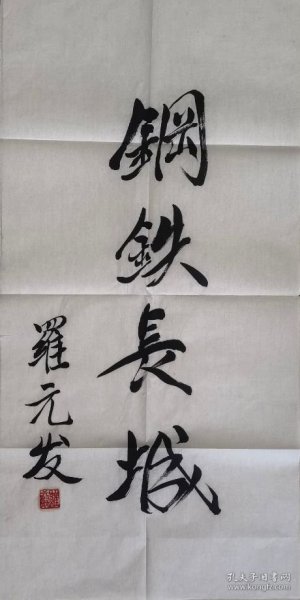 鋼鉄長城
羅元发
孔夫子旧书网